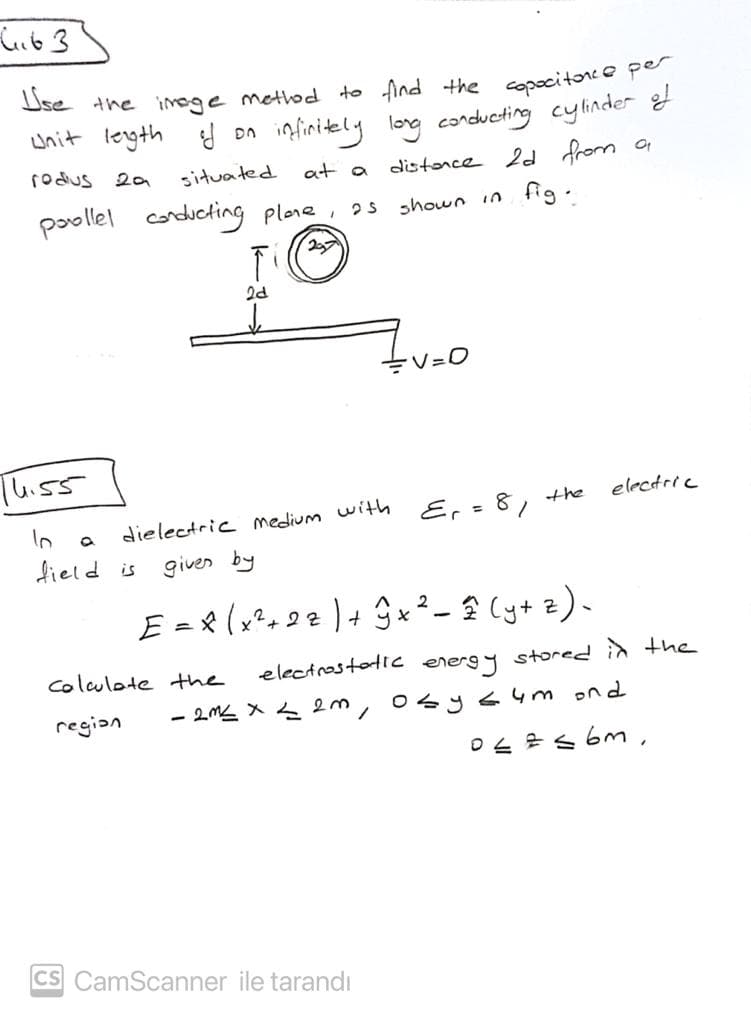 4.63
Use the image method to find the capacitance per
Unit length of an infinitely long conducting cylinder of
radius 2a situated at a distance 2d from a
parallel conducting plane, as shown in fig.
2a
2d
V=0
4.55
In a dielectric medium with Er = 8, the electric
field is given by
E = x̂ (x²+2z) + ŷx² - ẑ (y+z).
Calculate the electrostatic energy stored in the
region -2m ≤ x ≤ 2m, 0 ≤ y ≤ 4m and
0 ≤ z ≤ 6m.
CS CamScanner ile tarandı